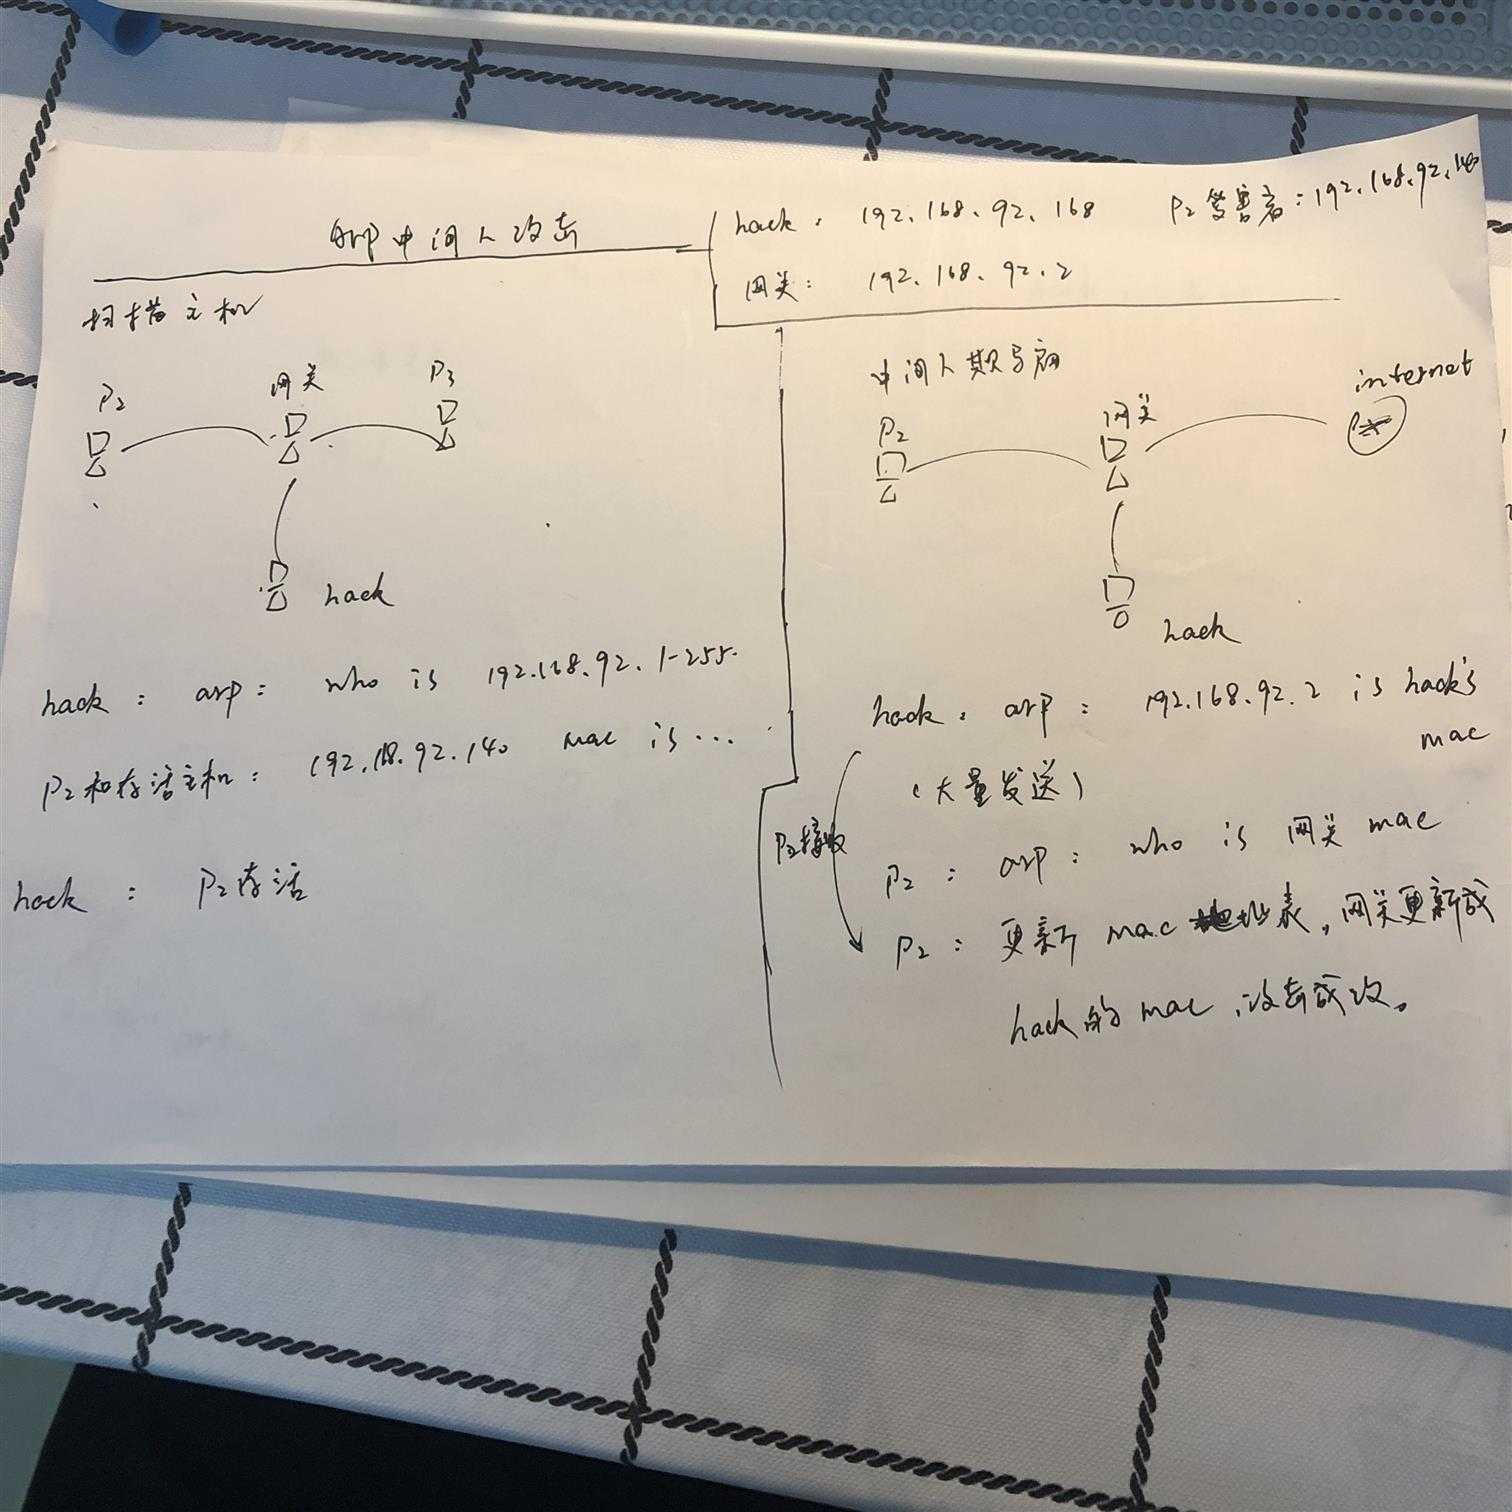 arp中间人攻击
hack: 192.168.92.168 P2受害者:192.168.92.140
网关: 192.168.92.2
扫描主机
P2 网关 P3
hack
hack: arp: who is 192.168.92.1-255.
P2和存活主机: 192.168.92.140 mac is ...
hack: P2存活
中间人欺骗
internet
P2 网关
hack
hack: arp: 192.168.92.2 is hack's
mac
(大量发送)
P2接收
P2: arp: who is 网关 mac
P2: 更新 mac 地址表,网关更新成
hack的mac,攻击成功。